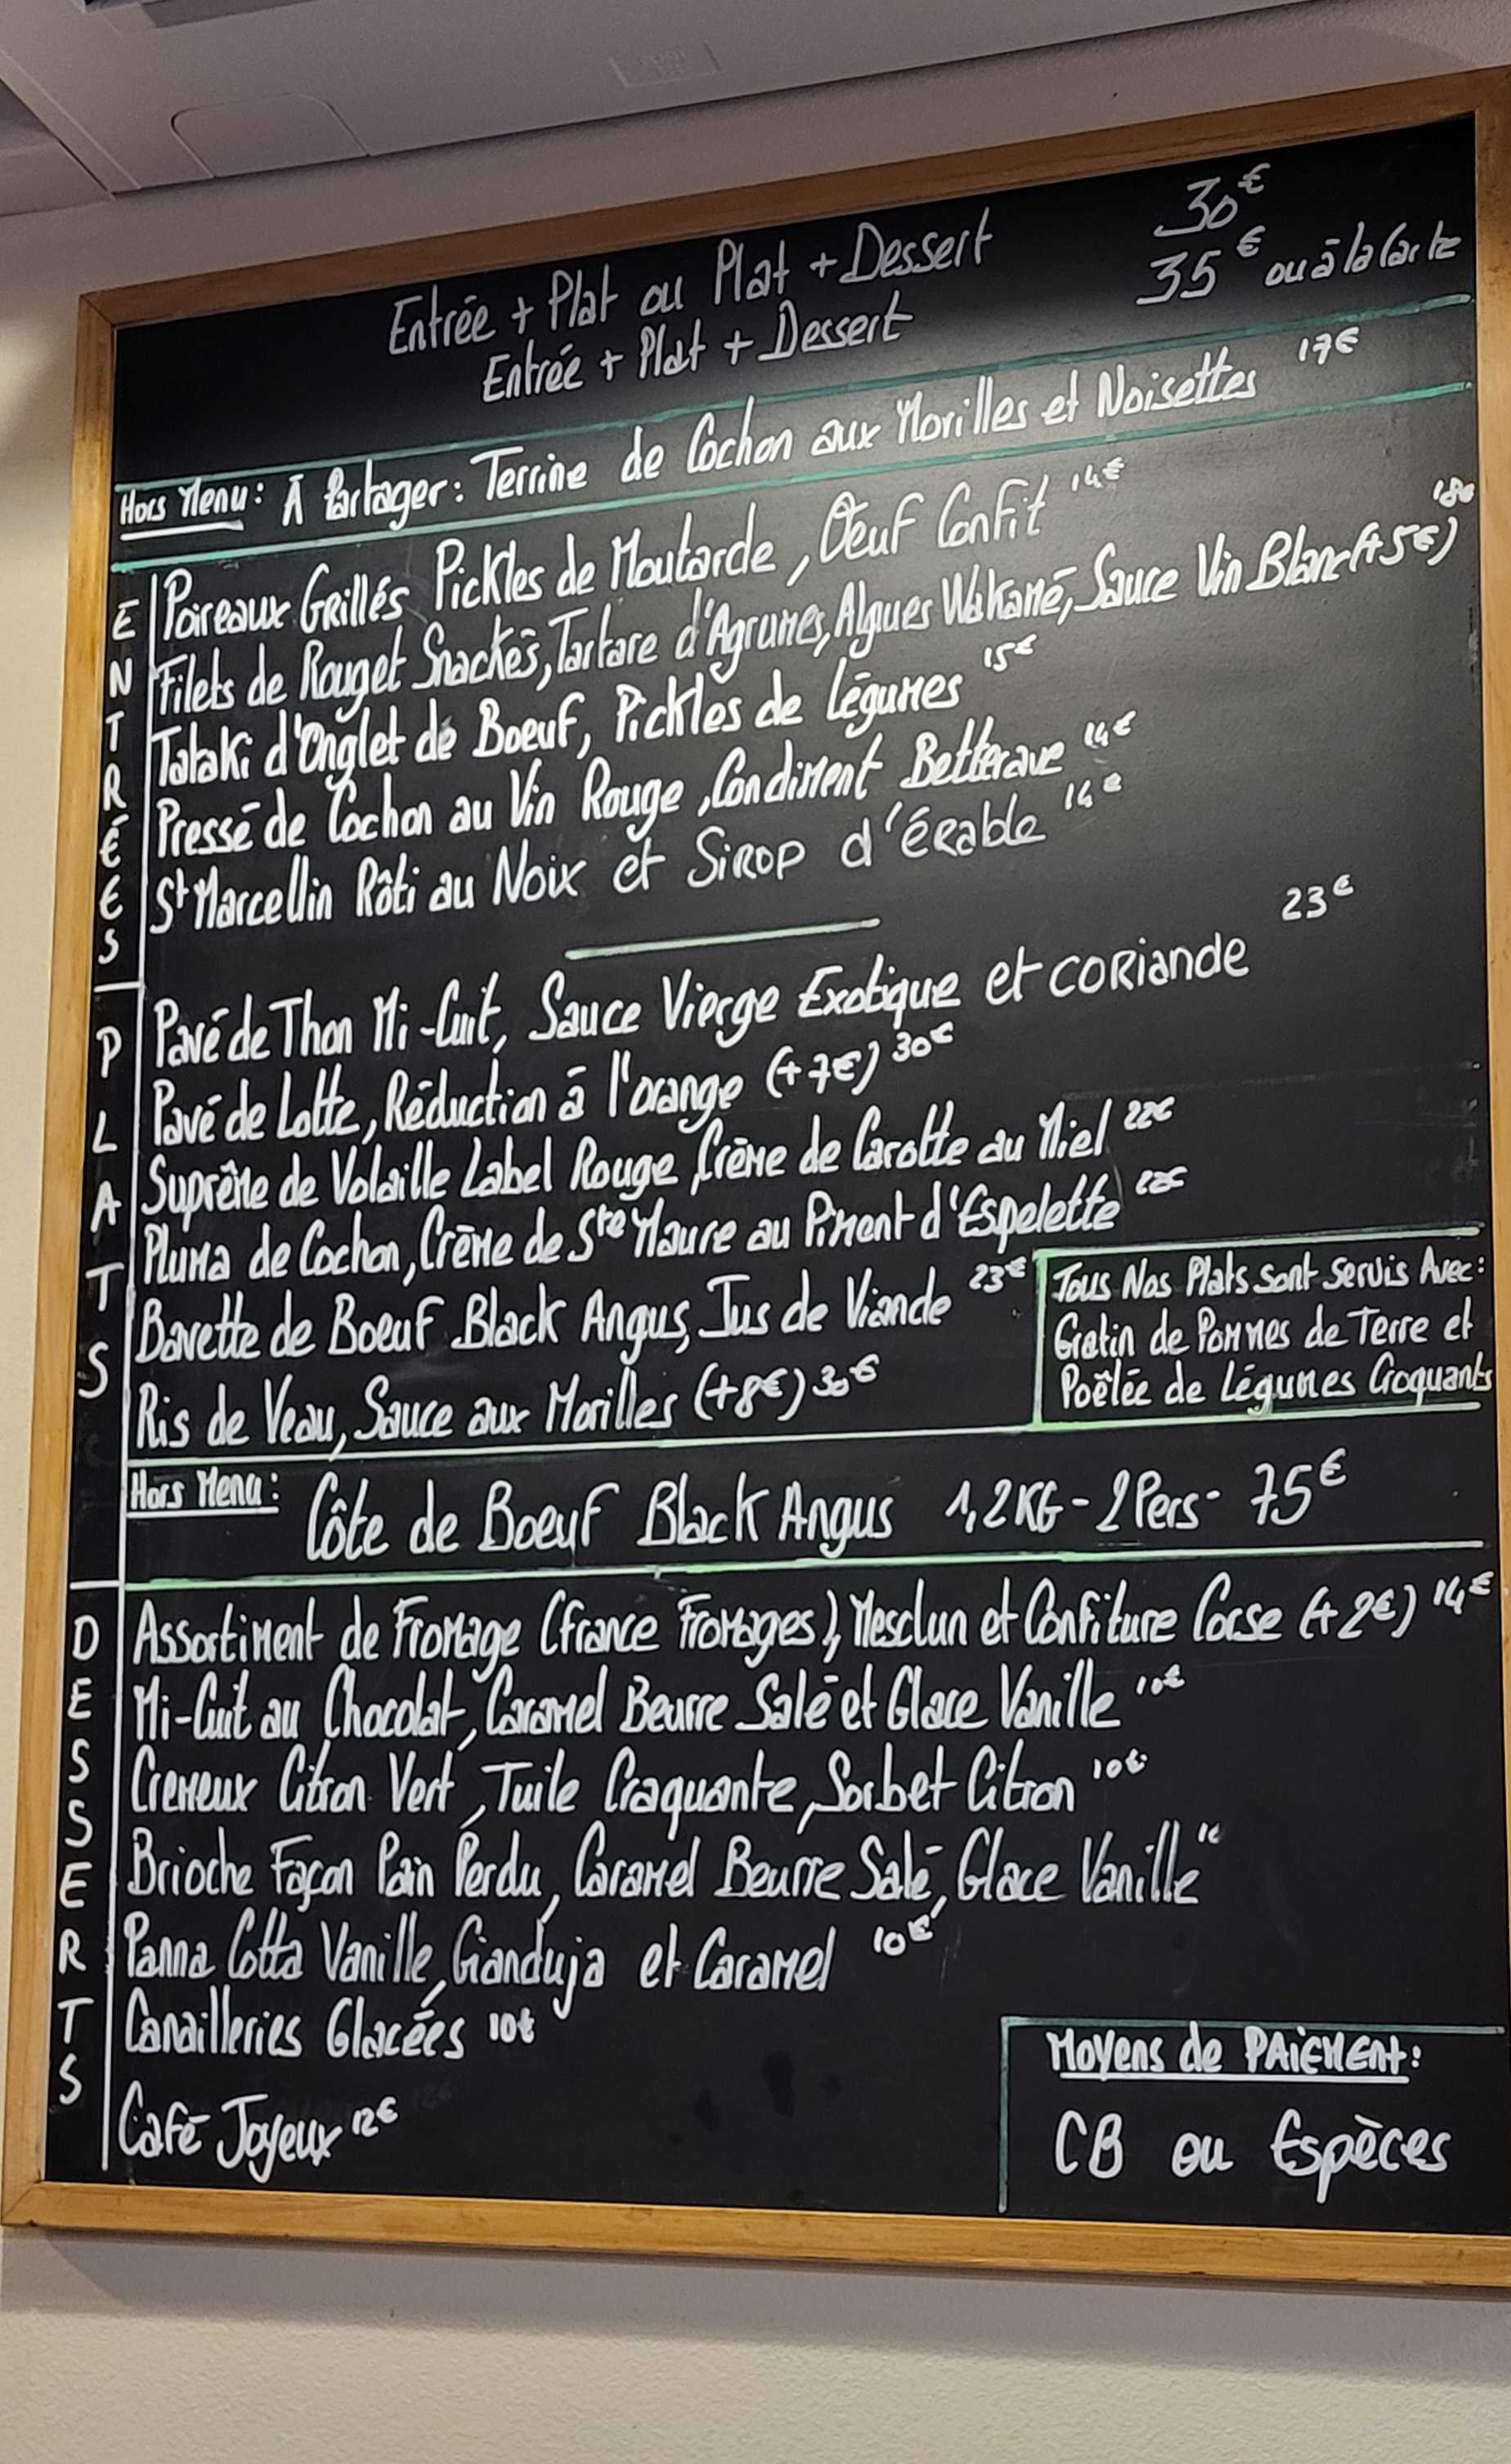 Entrée + Plat ou Plat + Dessert 30€
Entrée + Plat + Dessert 35€ ou à la Carte
Hors Menu: À Partager: Terrine de Cochon aux Morilles et Noisettes 17€
ENTRÉES
Poireaux Grillés Pickles de Moutarde, Oeuf Confit 14€
Filets de Rouget Snackés, Tartare d'Agrumes, Algues Wakamé, Sauce Vin Blanc (+5€) 18€
Tataki d'Onglet de Boeuf, Pickles de Légumes 15€
Pressé de Cochon au Vin Rouge, Condiment Betterave 14€
St Marcellin Rôti au Noix et Sirop d'érable 14€
PLATS
Pavé de Thon Mi-Cuit, Sauce Vierge Exotique et coriande 23€
Pavé de Lotte, Réduction à l'orange (+7€) 30€
Suprême de Volaille Label Rouge, Crème de Carotte au Miel 22€
Pluma de Cochon, Crème de Ste Maure au Piment d'Espelette
Bavette de Boeuf Black Angus, Jus de Viande 23€
Ris de Veau, Sauce aux Morilles (+8€) 30€
Tous Nos Plats sont servis Avec:
Gratin de Pommes de Terre et
Poêlée de Légumes Croquants
Hors Menu: Côte de Boeuf Black Angus 1,2KG - 2 Pers - 75€
DESSERTS
Assortiment de Fromage (france Fromages), Mesclun et Confiture Corse (+2€) 14€
Mi-Cuit au Chocolat, Caramel Beurre Salé et Glace Vanille 10€
Cremeux Citron Vert, Tuile Craquante, Sorbet Citron 10€
Brioche Façon Pain Perdu, Caramel Beurre Salé, Glace Vanille
Panna Cotta Vanille, Gianduja et Caramel 10€
Canailleries Glacées 10€
Café Joyeux 12€
Moyens de PAiEMENt:
CB ou Espèces